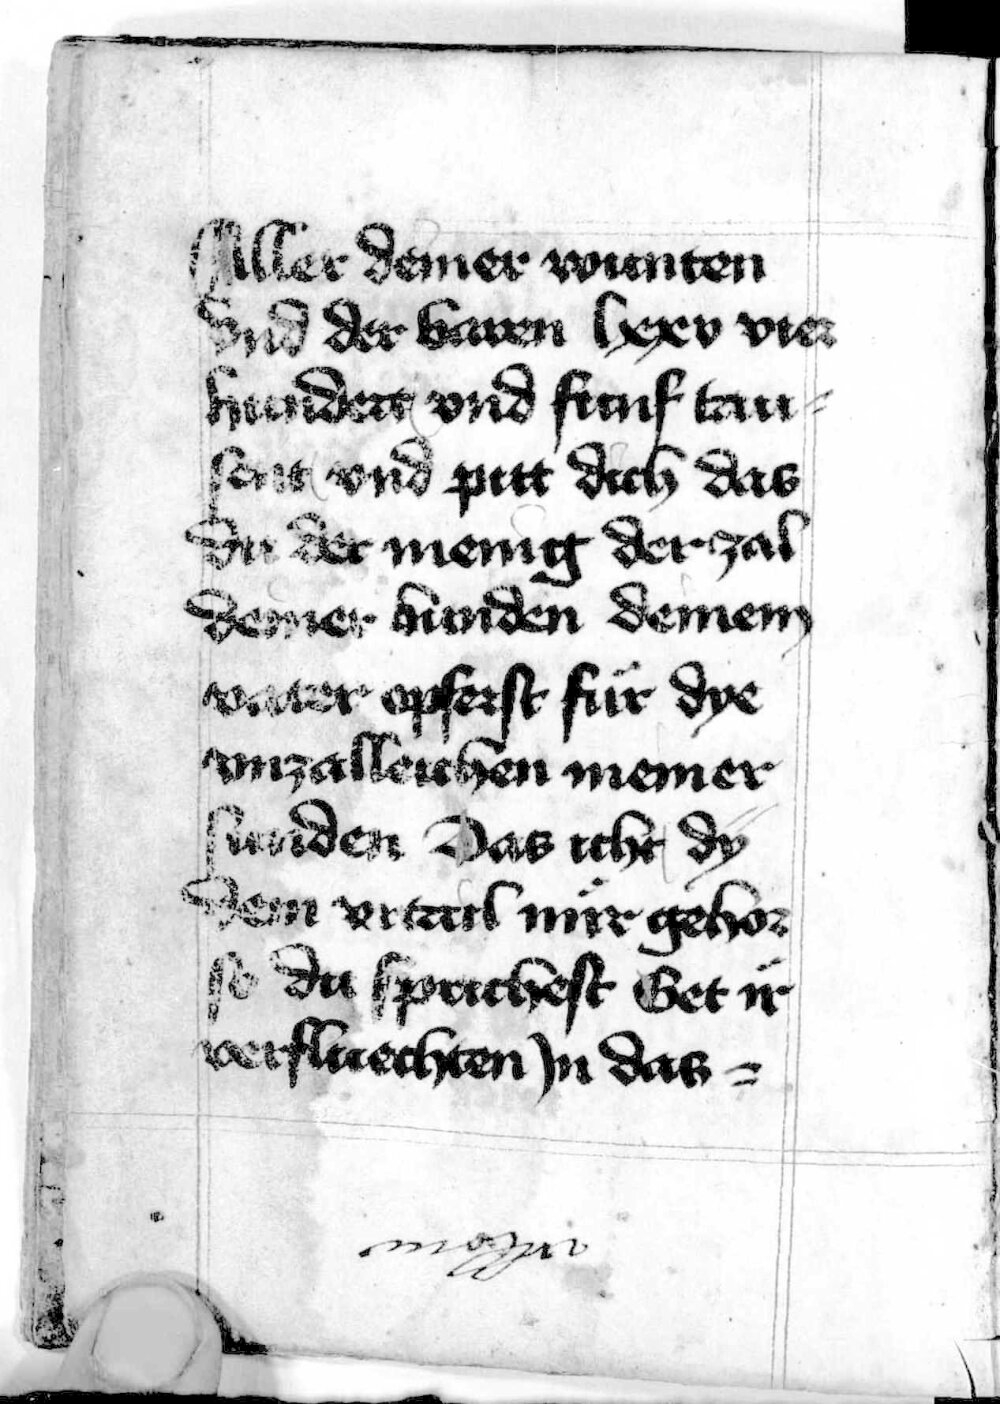 Aller deiner wunten
vnd der waren lxxv vier
hundert vnd funf tau-
sent vnd pitt dich das
du der menig der zal
deiner wunden deinem
vater opferst für dye
vnzalleichen meiner
sunden Das icht dy
dem vrtail mir gehor
so du sprichest Get ir
verfluechten Jn das =